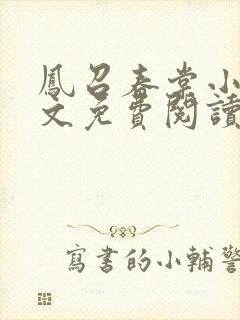 鳳召春棠小
文免費閱讀
寫書的小輔警